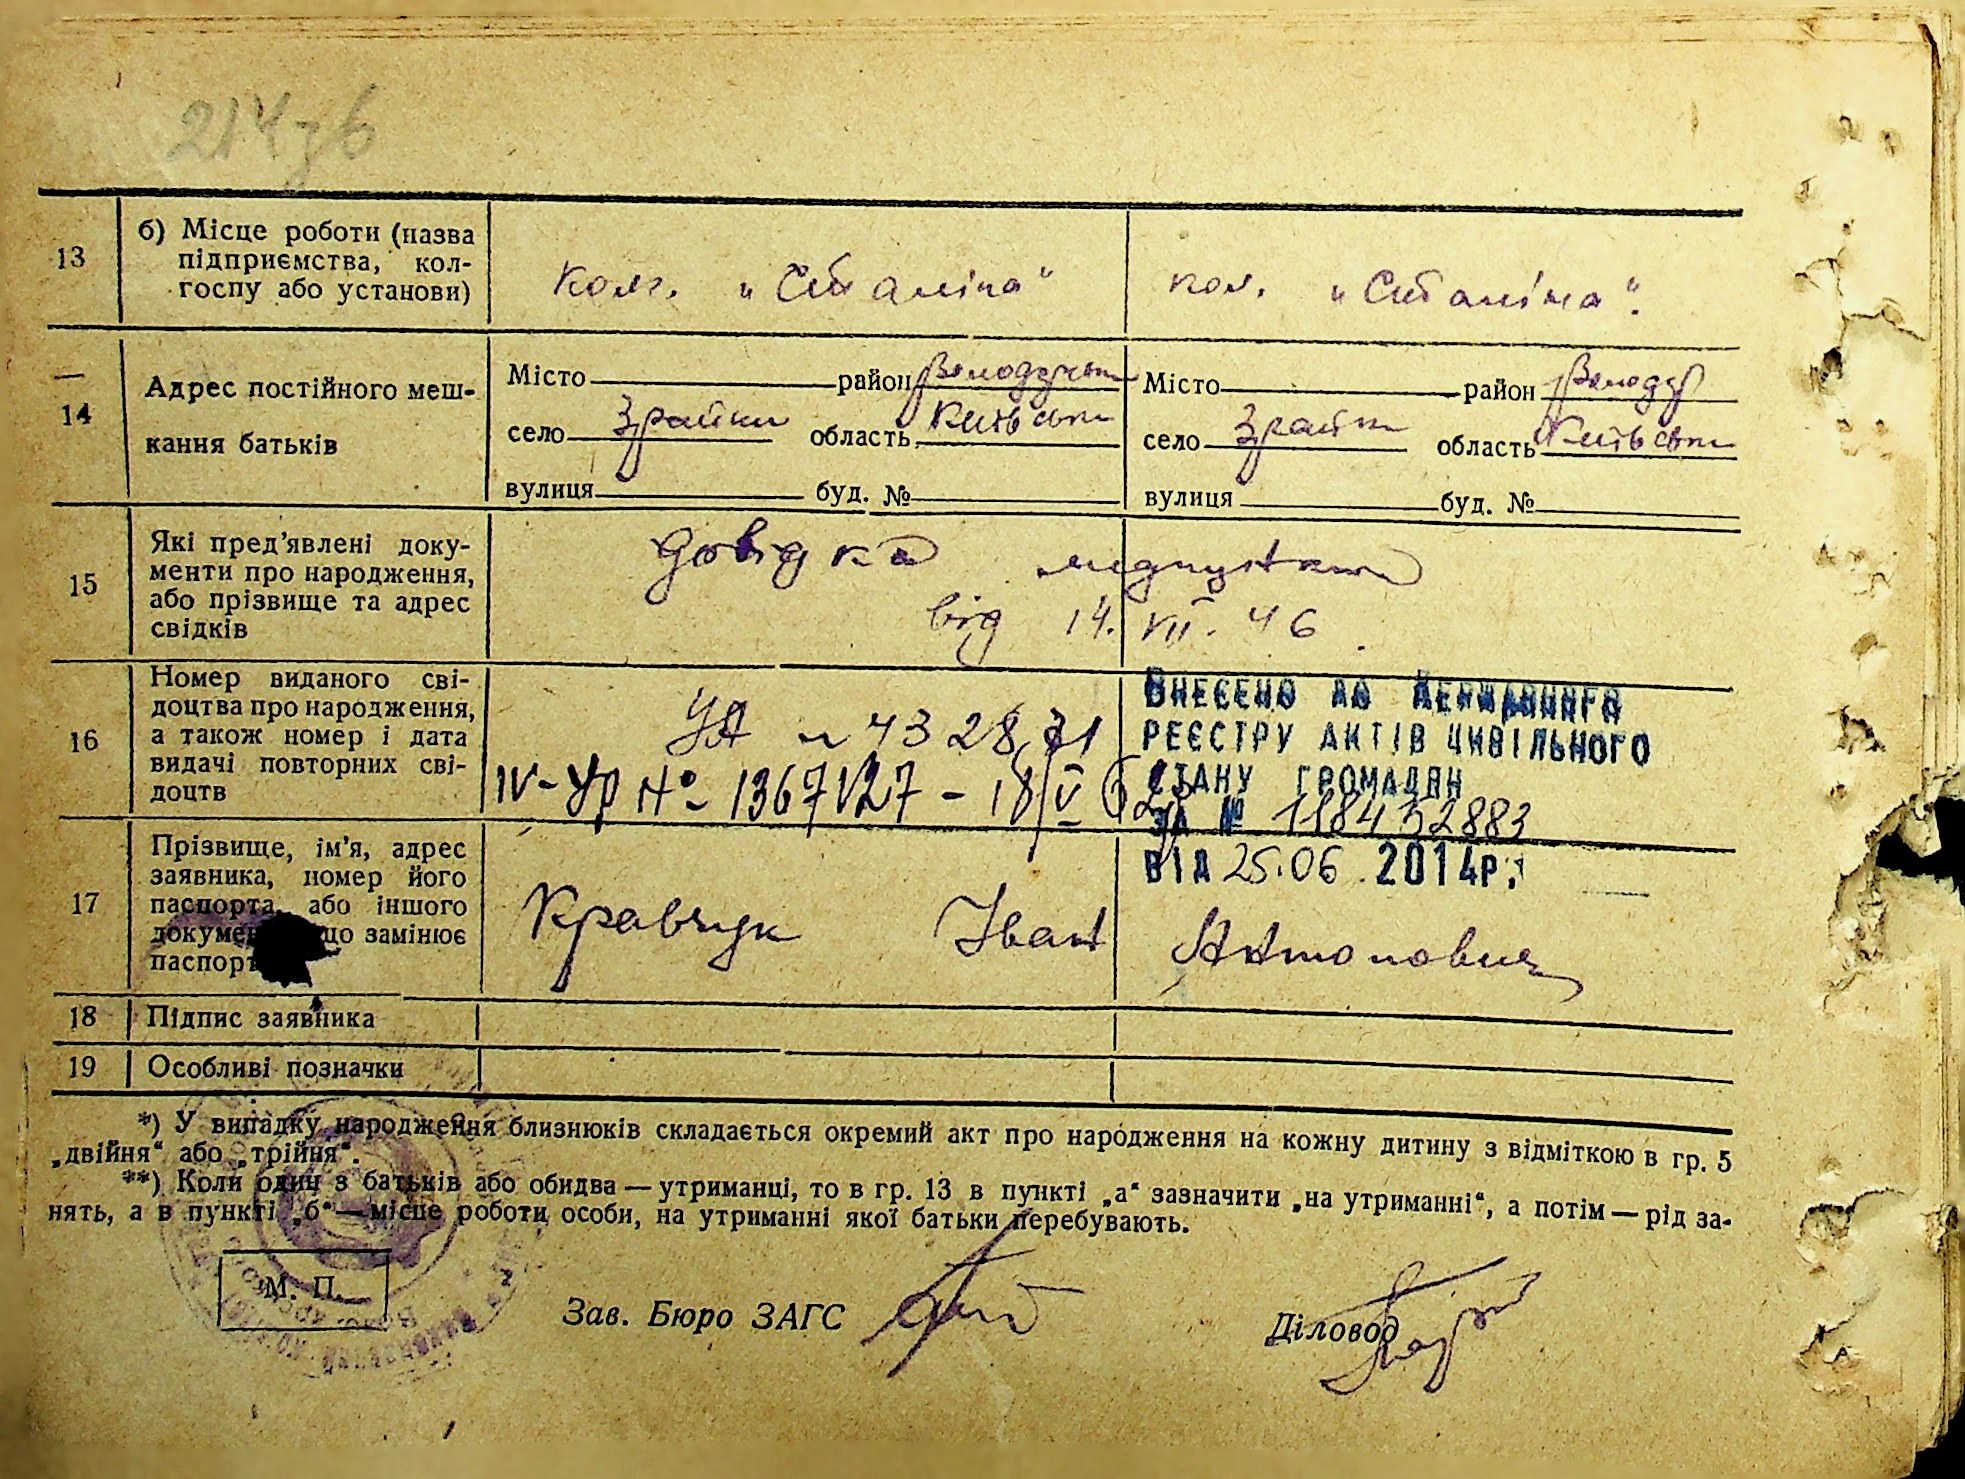 214зв
13 б) Місце роботи (назва
підприємства, кол-
госпу або установи)
Колг. „Сталіна“ кол. „Сталіна“.
14 Адрес постійного меш-
кання батьків
Місто район Володарськ Місто район Володар
село Зрайки область Київськ село Зрайки область Київськ
вулиця буд. № вулиця буд. №
15 Які пред’явлені доку-
менти про народження,
або прізвище та адрес
свідків
Довідка медпункта
від 14. VII. 46
16 Номер виданого сві-
доцтва про народження,
а також номер і дата
видачі повторних сві-
доцтв
УА № 432871
IV-УР № 1367127 - 18/V 62
Внесено до Державного
реєстру актів цивільного
стану громадян
за № 1184 32883
від 25.06.2014р.
17 Прізвище, ім’я, адрес
заявника, номер його
паспорта або іншого
що замінює
паспорт
Кравчук Іван Антонович
18 Підпис заявника
19 Особливі позначки
*) У випадку народження близнюків складається окремий акт про народження на кожну дитину з відміткою в гр. 5
„двійня“ або „трійня“.
**) Коли один з батьків або обидва — утриманці, то в гр. 13 в пункті „а“ зазначити „на утриманні“, а потім — рід за-
нять, а в пункті „б“ — місце роботи особи, на утриманні якої батьки перебувають.
М. П.
Зав. Бюро ЗАГС
Діловод